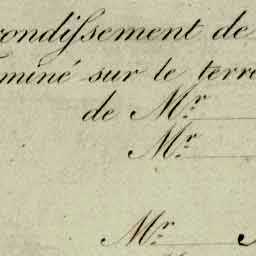 rondissement de
miné sur le terre
de Mr.
Mr.
Mr.